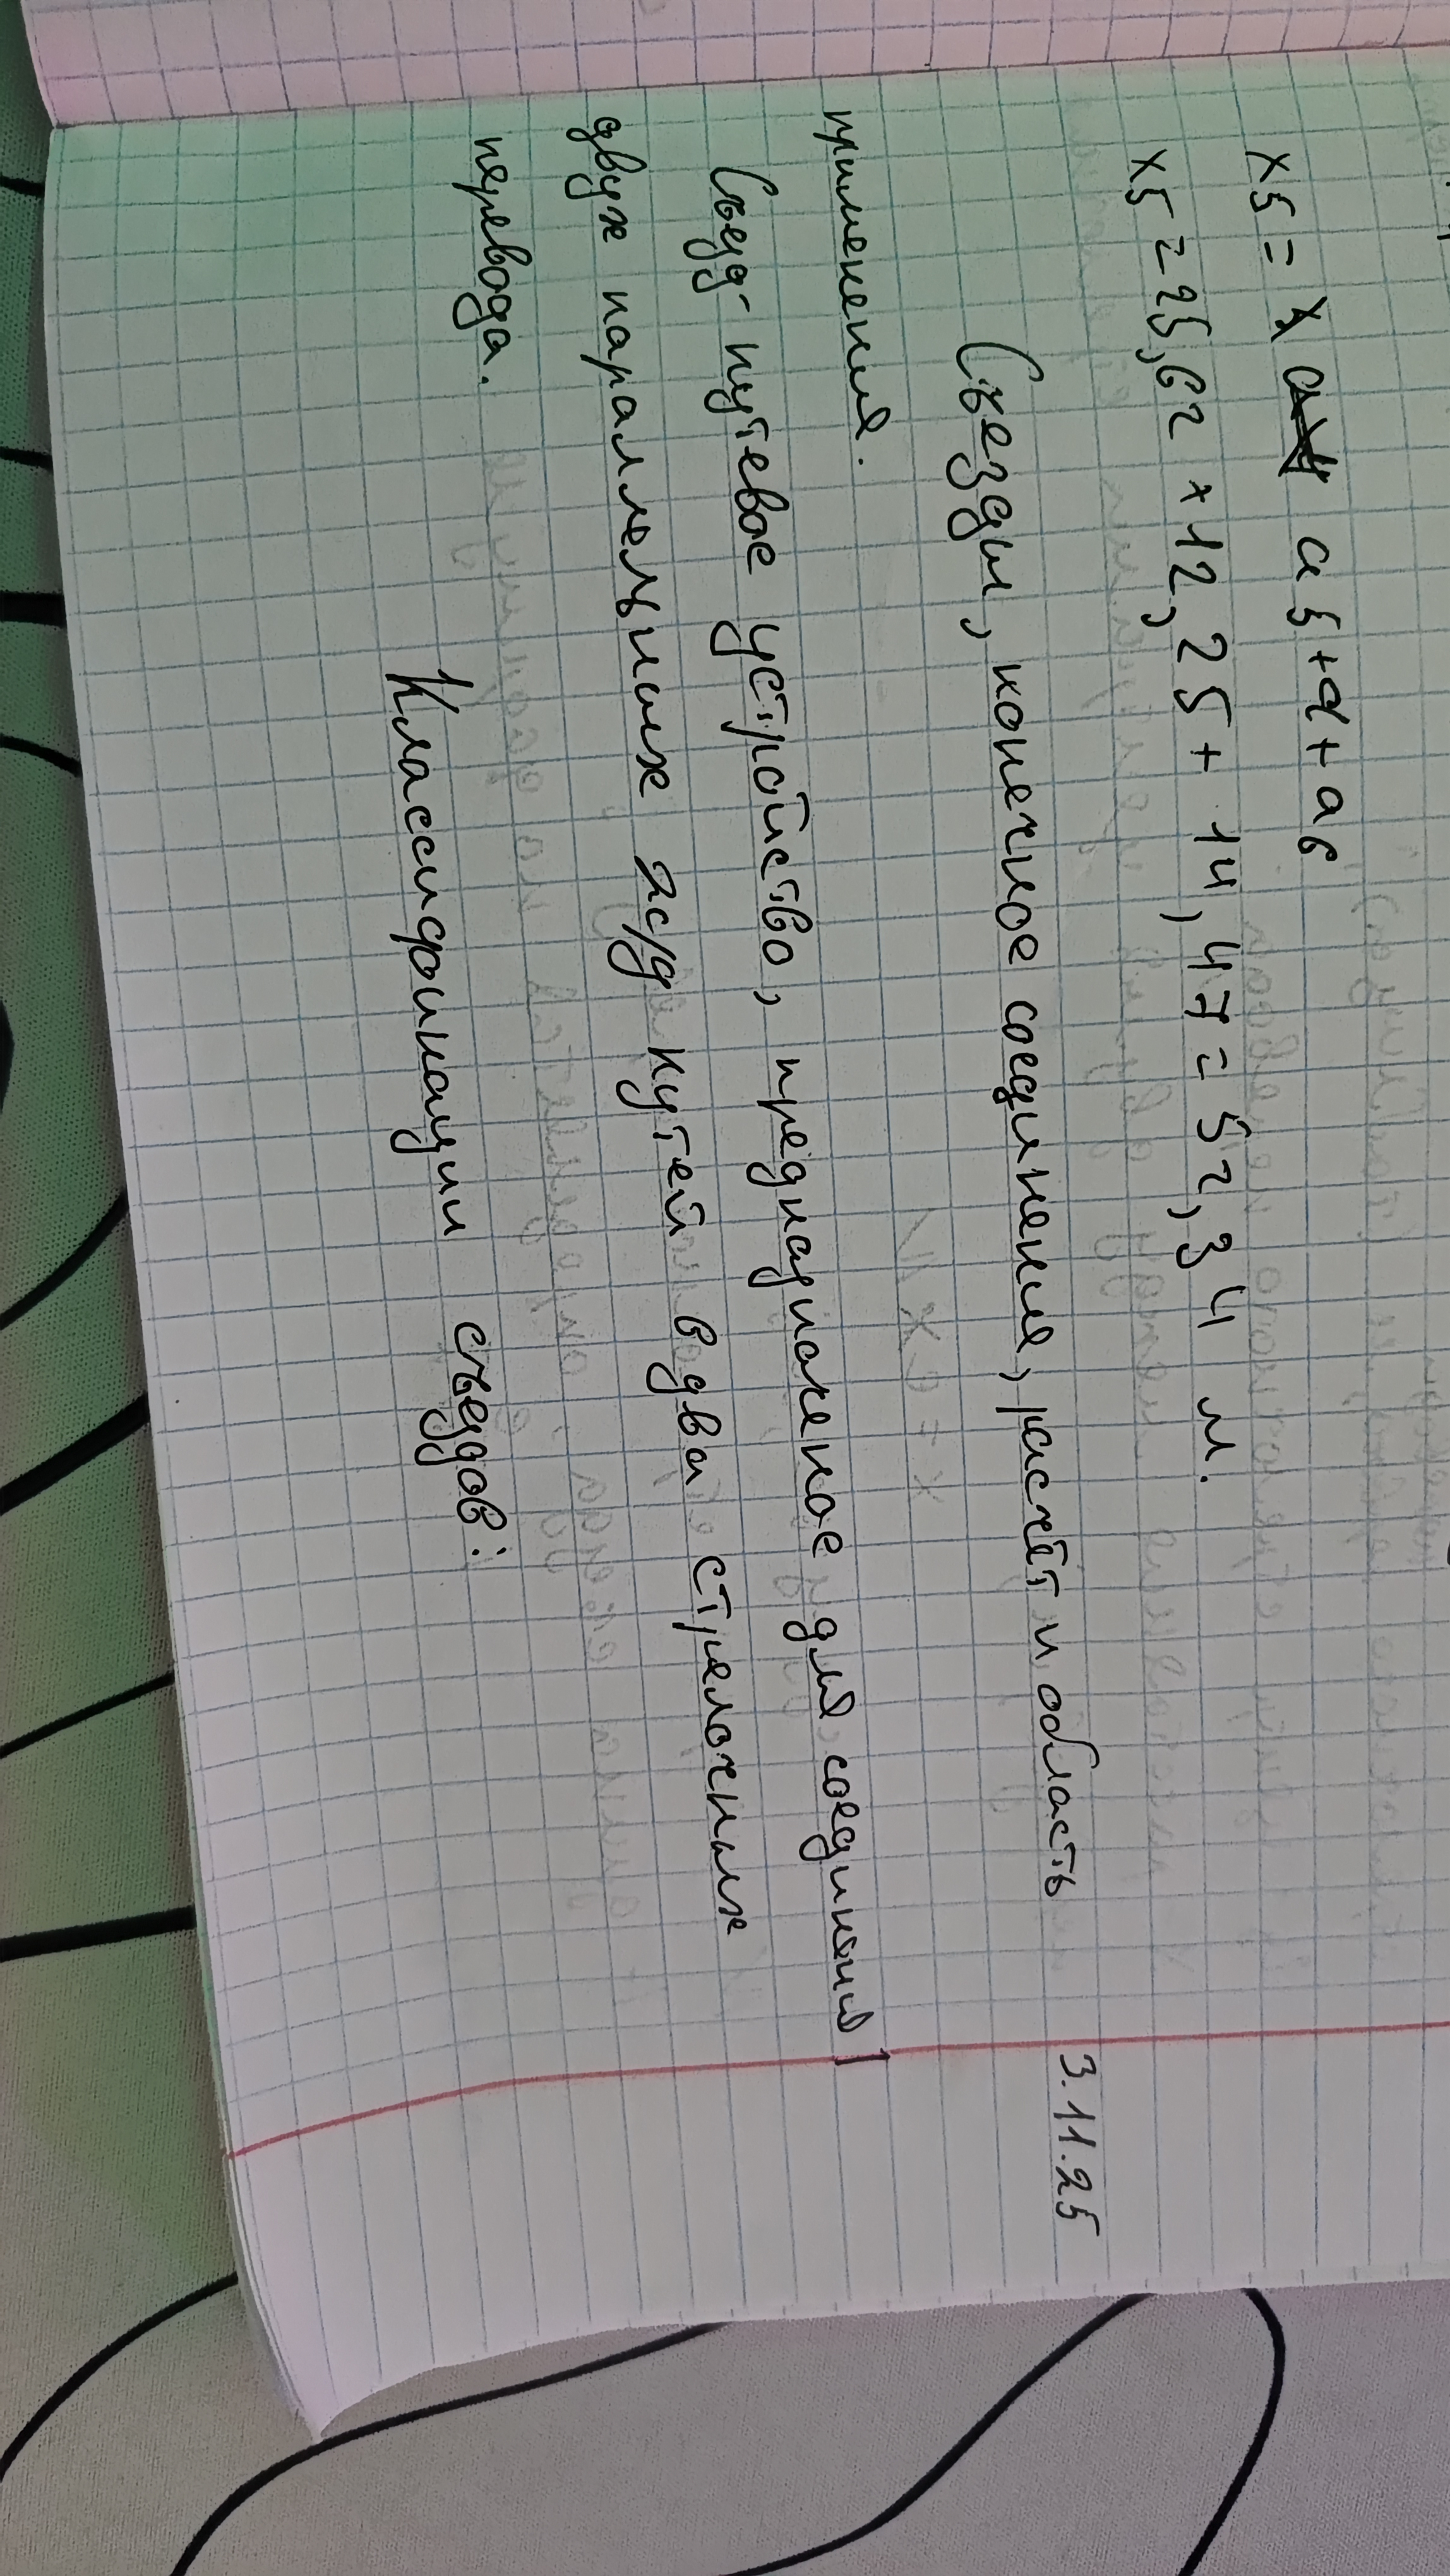 x5 = x a5 + d + a6
x5 = 25,62 + 12,25 + 14,47 = 52,34 м.
3.11.25
Съезды, конечное соединения, расчёт и область
применения.
Съезд - путевое устройство, предназначеное для соединения
двух параллельных ж/д путей в два стрелочных
перевода.
Классификации съездов: